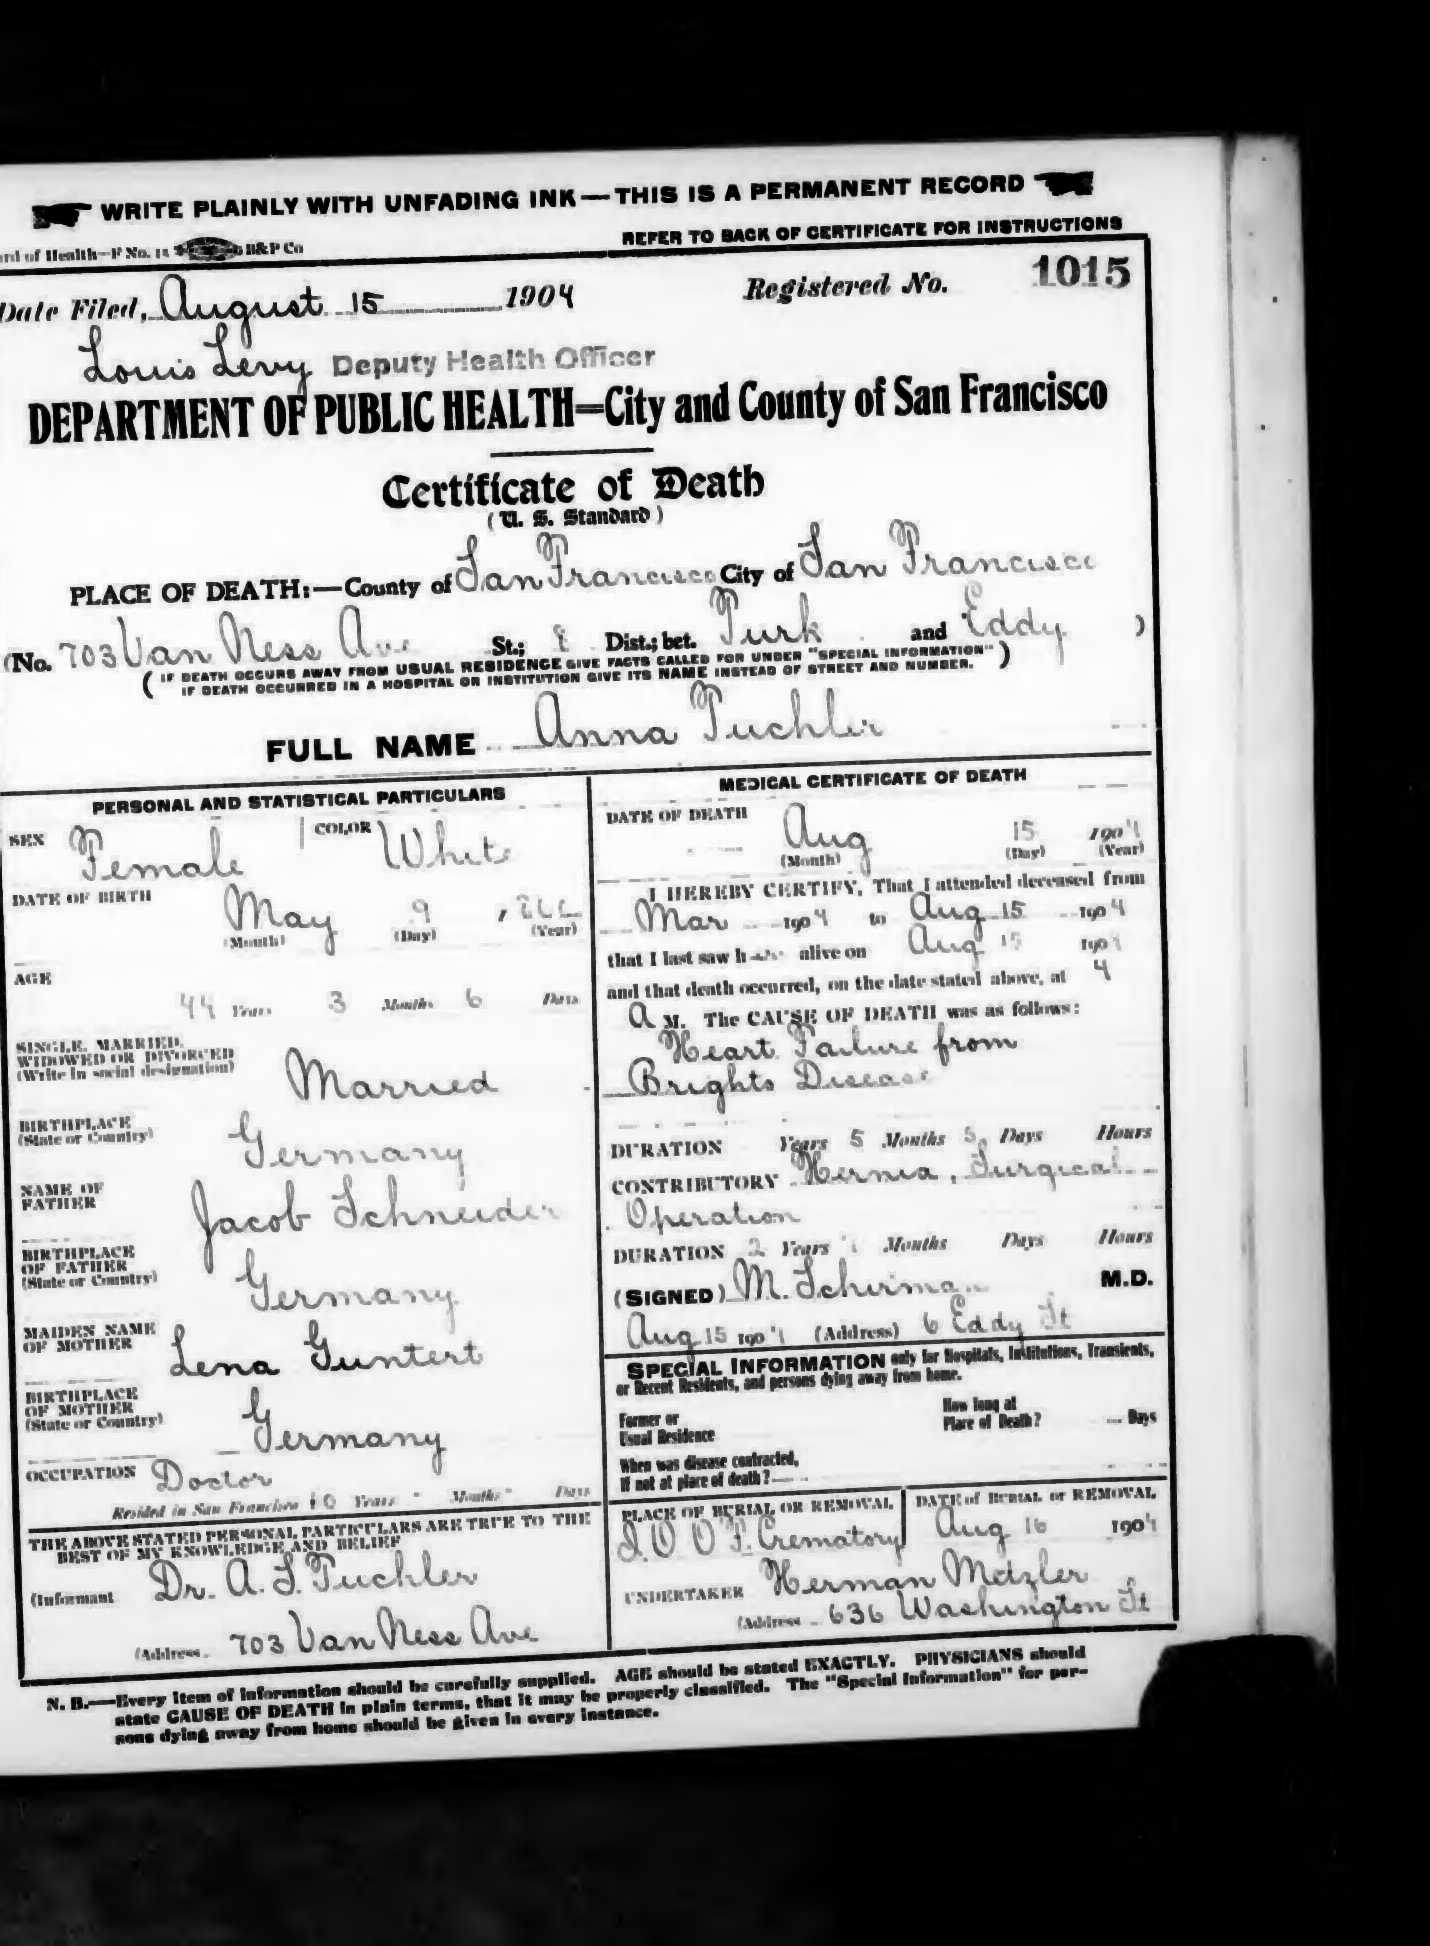 WRITE PLAINLY WITH UNFADING INK—THIS IS A PERMANENT RECORD
REFER TO BACK OF CERTIFICATE FOR INSTRUCTIONS
of Health—F No. H&P Co
Date Filed, August 15 1904 Registered No. 1015
Louis Levy Deputy Health Officer
DEPARTMENT OF PUBLIC HEALTH=City and County of San Francisco
Certificate of Death
(U. S. Standard)
PLACE OF DEATH:—County of San Francisco City of San Francisco
(No. 703 Van Ness Ave St.; 8 Dist.; bet. Turk and Eddy )
( IF DEATH OCCURS AWAY FROM USUAL RESIDENCE GIVE FACTS CALLED FOR UNDER "SPECIAL INFORMATION" )
IF DEATH OCCURRED IN A HOSPITAL OR INSTITUTION GIVE ITS NAME INSTEAD OF STREET AND NUMBER.
FULL NAME Anna Puchler
PERSONAL AND STATISTICAL PARTICULARS
SEX Female COLOR White
DATE OF BIRTH May 9
(Month) (Day) (Year)
AGE
44 Years 3 Months 6 Days
SINGLE, MARRIED,
WIDOWED OR DIVORCED
(Write in social designation) Married
BIRTHPLACE
(State or Country) Germany
NAME OF
FATHER Jacob Schneider
BIRTHPLACE
OF FATHER
(State or Country) Germany
MAIDEN NAME
OF MOTHER Lena Guntert
BIRTHPLACE
OF MOTHER
(State or Country) Germany
OCCUPATION Doctor
Resided in San Francisco 10 Years " Months " Days
THE ABOVE STATED PERSONAL PARTICULARS ARE TRUE TO THE
BEST OF MY KNOWLEDGE AND BELIEF
(Informant Dr. A. S. Puchler
(Address 703 Van Ness Ave
MEDICAL CERTIFICATE OF DEATH
DATE OF DEATH
Aug 15 1904
(Month) (Day) (Year)
I HEREBY CERTIFY, That I attended deceased from
Mar 1904 to Aug 15 1904
that I last saw h alive on Aug 15 1904
and that death occurred, on the date stated above, at 4
A M. The CAUSE OF DEATH was as follows:
Heart Failure from
Brights Disease
DURATION Years 5 Months 5 Days Hours
CONTRIBUTORY Hernia, Surgical
Operation
DURATION 2 Years Months Days Hours
(SIGNED) M. Schirman M.D.
Aug 15 1904 (Address) 6 Eddy St
SPECIAL INFORMATION only for Hospitals, Institutions, Transients,
or Recent Residents, and persons dying away from home.
Former or
Usual Residence
How long at
Place of Death? Days
When was disease contracted,
If not at place of death?
PLACE OF BURIAL OR REMOVAL DATE of BURIAL or REMOVAL
I. O O F. Crematory Aug 16 1904
UNDERTAKER Herman Metzler
(Address 636 Washington St
N. B.—Every item of information should be carefully supplied. AGE should be stated EXACTLY. PHYSICIANS should
state CAUSE OF DEATH in plain terms, that it may be properly classified. The "Special Information" for per-
sons dying away from home should be given in every instance.